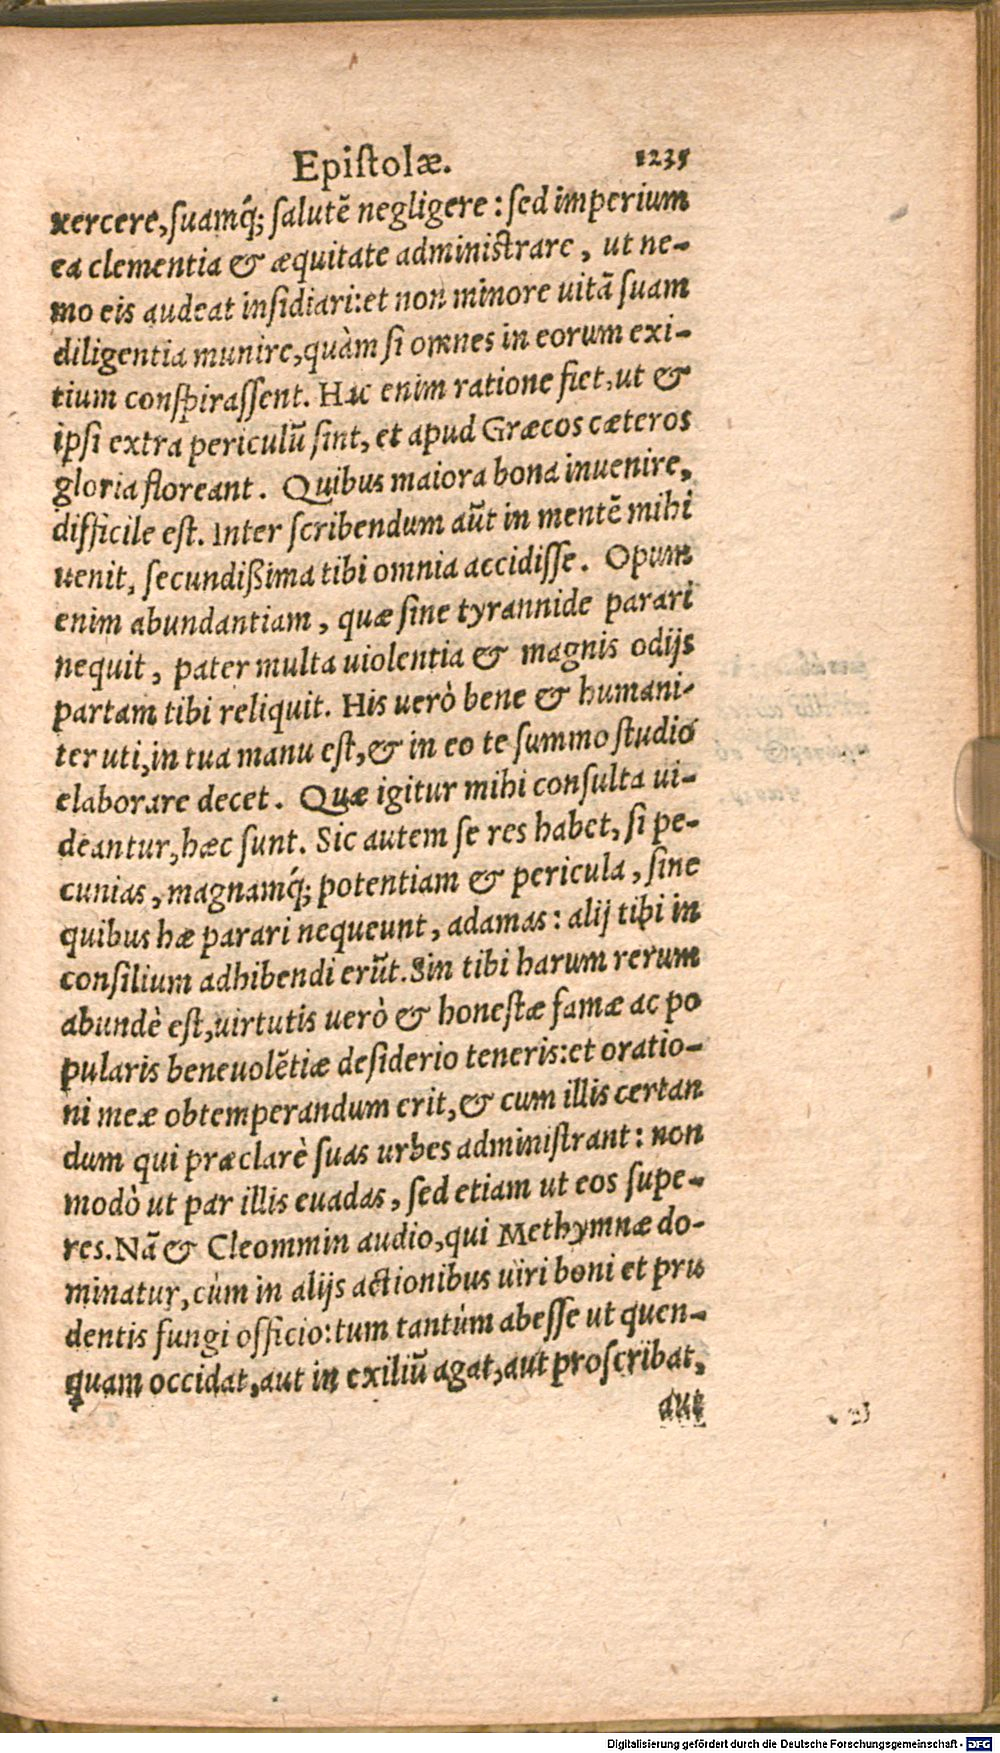 Epiſtolæ. 1235
xercere, ſuamq́; ſalutẽ negligere: ſed imperium
ea clementia & æquitate adminiſtrare, ut ne-
mo eis audeat inſidiari: et non minore uitã ſuam
diligentia munire, quàm ſi omnes in eorum exi-
tium conſpiraſſent. Hac enim ratione fiet, ut &
ipſi extra periculũ ſint, et apud Græcos cæteros
gloria floreant. Quibus maiora bona inuenire,
difficile eſt. Inter ſcribendum aũt in mentẽ mihi
uenit, ſecundißima tibi omnia accidiſſe. Opum
enim abundantiam, quæ ſine tyrannide parari
nequit, pater multa uiolentia & magnis odijs
partam tibi reliquit. His uerò bene & humani-
ter uti, in tua manu eſt, & in eo te ſummo ſtudio
elaborare decet. Quæ igitur mihi conſulta ui-
deantur, hæc ſunt. Sic autem ſe res habet, ſi pe-
cunias, magnamq́; potentiam & pericula, ſine
quibus hæ parari nequeunt, adamas: alij tibi in
conſilium adhibendi erũt. Sin tibi harum rerum
abundè eſt, uirtutis uerò & honeſtæ famæ ac po
pularis beneuolẽtiæ deſiderio teneris: et oratio-
ni meæ obtemperandum erit, & cum illis certan
dum qui præclarè ſuas urbes adminiſtrant: non
modò ut par illis euadas, ſed etiam ut eos ſupe-
res. Nã & Cleommin audio, qui Methymnæ do-
minatur, cùm in alijs actionibus uiri boni et pru
dentis fungi officio: tum tantùm abeſſe ut quen-
quam occidat, aut in exiliũ agat, aut proſcribat,
aut
Digitalisierung gefördert durch die Deutsche Forschungsgemeinschaft - DFG